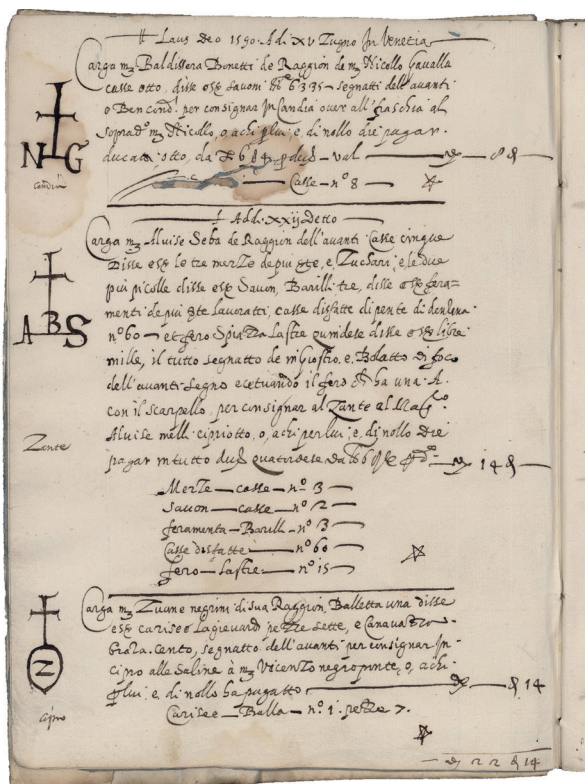 Laus Deo 1590 Adi XV Zugno In Venetia
Carga mz Baldissera Bonetti de Raggion de mz Nicollo Gavalla
casse otto, disse esser savoni segnatti dell'avanti
per consignar In Candia overe all' fraschia al
sopradº mz Nicollo, o, a chi plui, e, di nollo die pagar
ducati otto, da val 8
N G
Candia
Casse nº 8
Addi XXij Detto
Carga mz Aluise Seba de Raggion dell'avanti Casse cinque
Disse esser le tre merze de piu ste, e, Zuchari, e, le due
piu picolle disse esser Savon, Barilli tre, disse esser fera=
menti de piu ste lavoratti, casse disfatte dipente di
nº 60 et fero Lastre quindese disse esser libre
mille, il tutto segnatto de ingiostro, e, Bolatto di foco
dell'avanti segno ecetuando il fero ha una A.
con il scarpello, per consignar al Zante al
A B S
Zante
Aluise cipriotto, o, a chi per lui, e, di nollo die
pagar in tutto duc quatordese 14
Merze casse nº 3
Savon casse nº 2
feramenta Barill nº 3
Casse disfatte nº 60
fero Lastre nº 15
Carga mz Zuane negrini di sua Raggion Balletta una disse
esser carisee pezze sette, e Canavazzo
cento, segnatto dell'avanti per consignar In
cipro alle Saline à mz Vicenzo negroponte, o, a chi
plui, e, di nollo ha pagatto 14
Z
cipro
Carisee Balla nº 1. pezze 7.
22 14